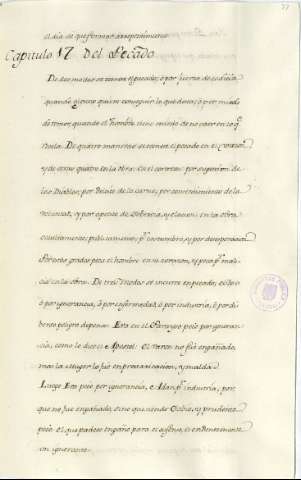 el dia de que formar arrepentimiento
Capitulo 17 Del Pecado
De dos modos se comete el pecado; ó por fuerza de codicia
quando quiere quien conseguir lo que desea; ó por miedo
de temor, quando el hombre tiene miedo de no caer en lo q.
rezela. De quatro maneras se comete el pecado en el Corazon
y de otras quatro en la obra: en el corazon por sugestion de
los Diablos; por deleite de la carne; por consentimiento de la
voluntad, y por especie de soberbia, y elacion: en la obra
ocultamente, publicamente, p.r costumbre, y por desesperacion
Por estos grados peca el hombre en su corazon, y peca p.r mali-
cia en la obra. De tres modos se incurre el pecado, es decir
ó por ignorancia, ó por enfermedad, ó por industria,
peligro de pena. Eva en el Parayso pecó por ignoran-
cia, como lo dice el Apostol: El varon no fué engañado,
mas la Muger lo fué en prevaricacion, y maldad
Luego Eva pecó por ignorancia, é Adan p.r industria, por
que no fue engañado, sino que siendo Sabio, y prudente
pecó. El que padece engaño para el asenso, es evidentemente
un ignorante.